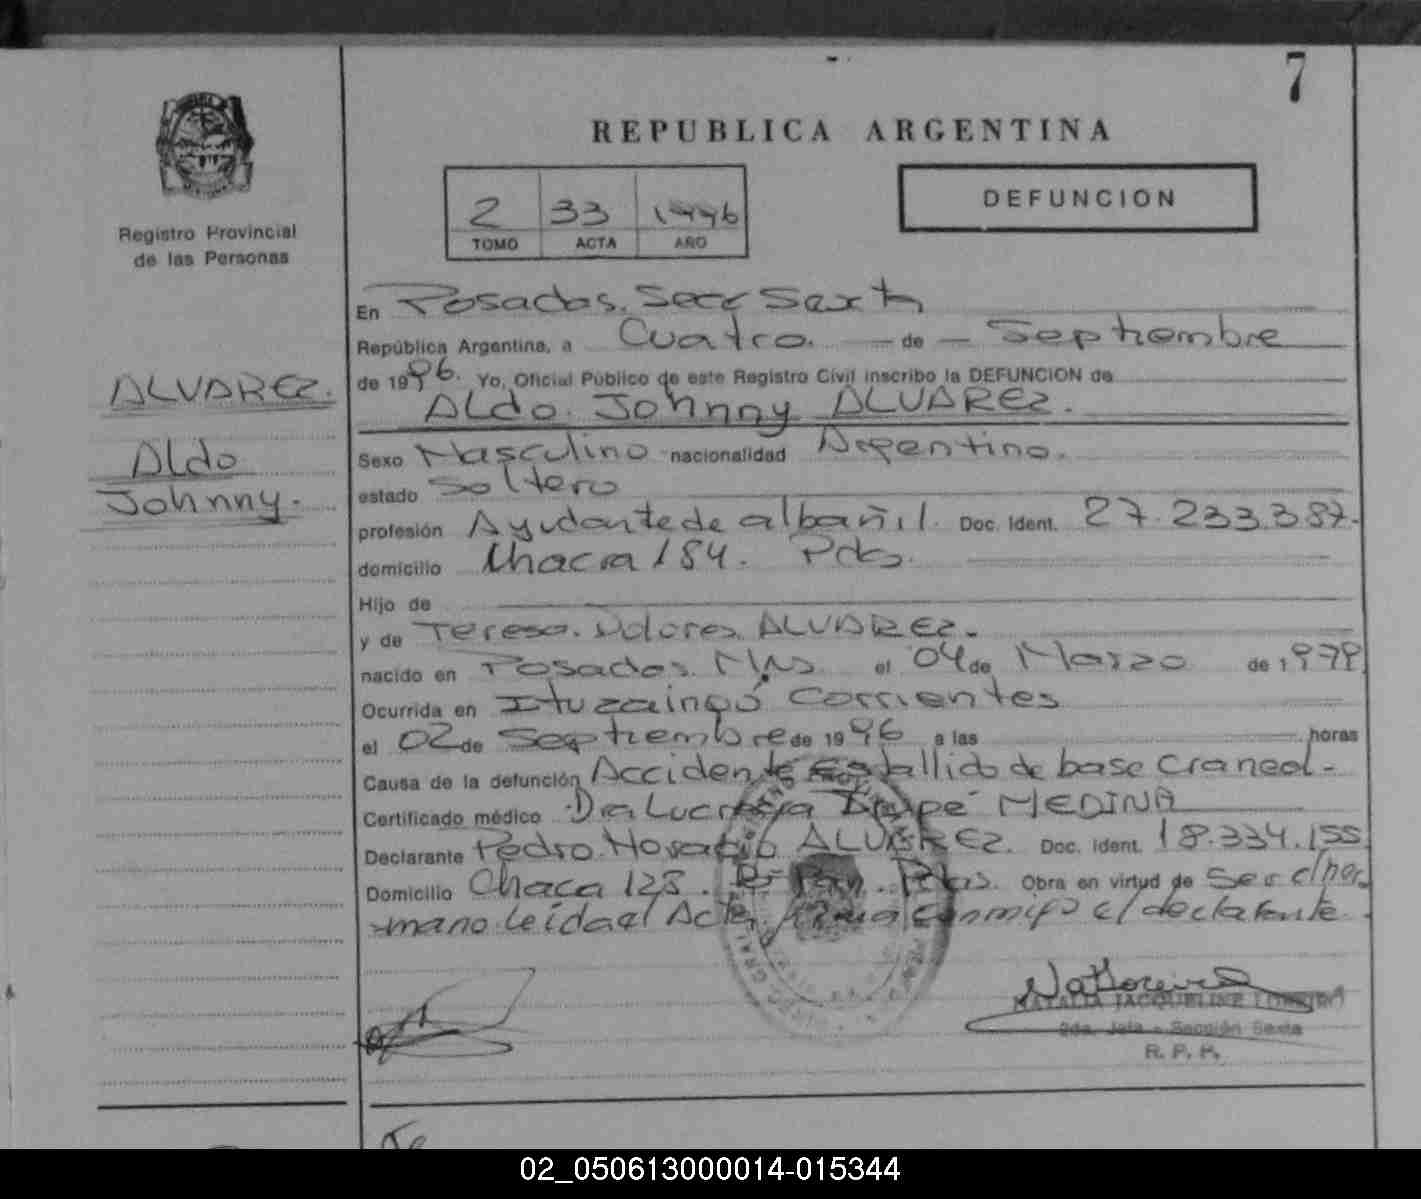 7
REPUBLICA ARGENTINA
2 33 1996
TOMO ACTA AÑO
DEFUNCION
Registro Provincial
de las Personas
ALVAREZ.
Aldo
Johnny.
En Posadas. Secc Sexta
República Argentina, a Cuatro. de Septiembre
de 1996. Yo, Oficial Público de este Registro Civil inscribo la DEFUNCION de
Aldo. Johnny ALVAREZ.
Sexo Masculino nacionalidad Argentino.
estado Soltero
profesión Ayudante de albañil. Doc. Ident. 27.233.387.
domicilio Chacra 184. Pdas.
Hijo de
y de Teresa. Dolores. ALVAREZ.
nacido en Posadas. Mns. el 04 de Marzo de 1979
Ocurrida en Ituzaingó Corrientes
el 02 de Septiembre de 1996 a las horas
Causa de la defunción Accidente Estallido de base craneal-
Certificado médico Dra Lucrecia MEDINA
Declarante Pedro. Horacio ALVAREZ. Doc. Ident. 18.334.155
Domicilio Chaca 123. Pdas. Obra en virtud de Ser el her
mano leida el Acta, firma conmigo el declarante.
NATALIA JACQUELINE
2da. Jefa - Sección Sexta
R. P. P.
02_050613000014-015344